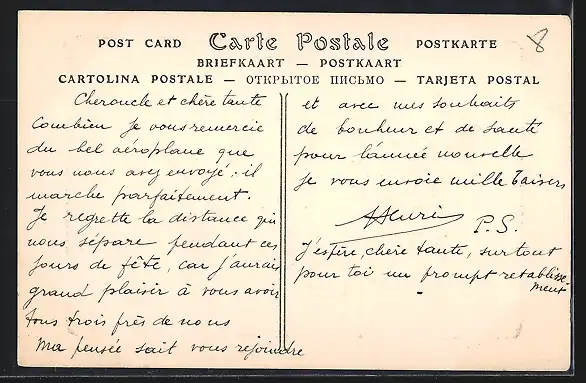 POST CARD Carte Postale POSTKARTE
BRIEFKAART — POSTKAART
CARTOLINA POSTALE — ОТКРЫТОЕ ПИСЬМО — TARJETA POSTAL
8
Cher oncle et chère tante
Combien je vous remercie
du bel aéroplane que
vous nous avez envoyé : il
marche parfaitement.
Je regrette la distance qui
nous sépare pendant ces
jours de fête, car j'aurais
grand plaisir à vous avoir
tous trois près de nous
Ma pensée sait vous rejoindre
et avec mes souhaits
de bonheur et de santé
pour l'année nouvelle
je vous envoie mille baisers
Henri
P.S.
J'espère, chère tante, surtout
pour toi un prompt rétablisse-
ment